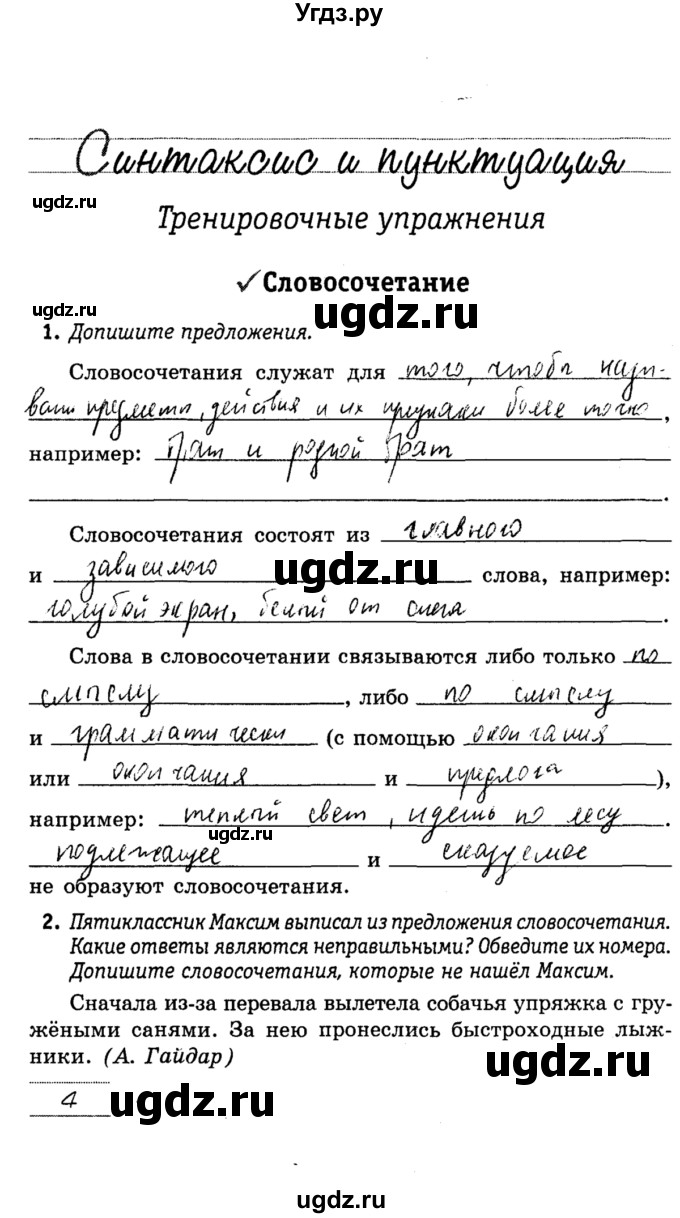 Угдз.ру
Синтаксис и пунктуация
ugdz.ru
Тренировочные упражнения
✓Словосочетание
ugdz.ru
ugdz.ru
1. Допишите предложения.
Словосочетания служат для того, чтобы назы-
вать предметы, действия и их признаки более точно,
например: Брат и родной брат
.
Словосочетания состоят из главного
и зависимого слова, например:
ugdz.ru
голубой экран, белый от снега.
Слова в словосочетании связываются либо только по
смыслу, либо по смыслу
и грамматически (с помощью окончания
или окончания и предлога),
например: теплый свет, идешь по лесу.
ugdz.ru
подлежащее и сказуемое
не образуют словосочетания.
2. Пятиклассник Максим выписал из предложения словосочетания.
Какие ответы являются неправильными? Обведите их номера.
Допишите словосочетания, которые не нашёл Максим.
Сначала из-за перевала вылетела собачья упряжка с гру-
жёными санями. За нею пронеслись быстроходные лыж-
ники. (А. Гайдар)
ugdz.ru
4
ugdz.ru
ugdz.ru